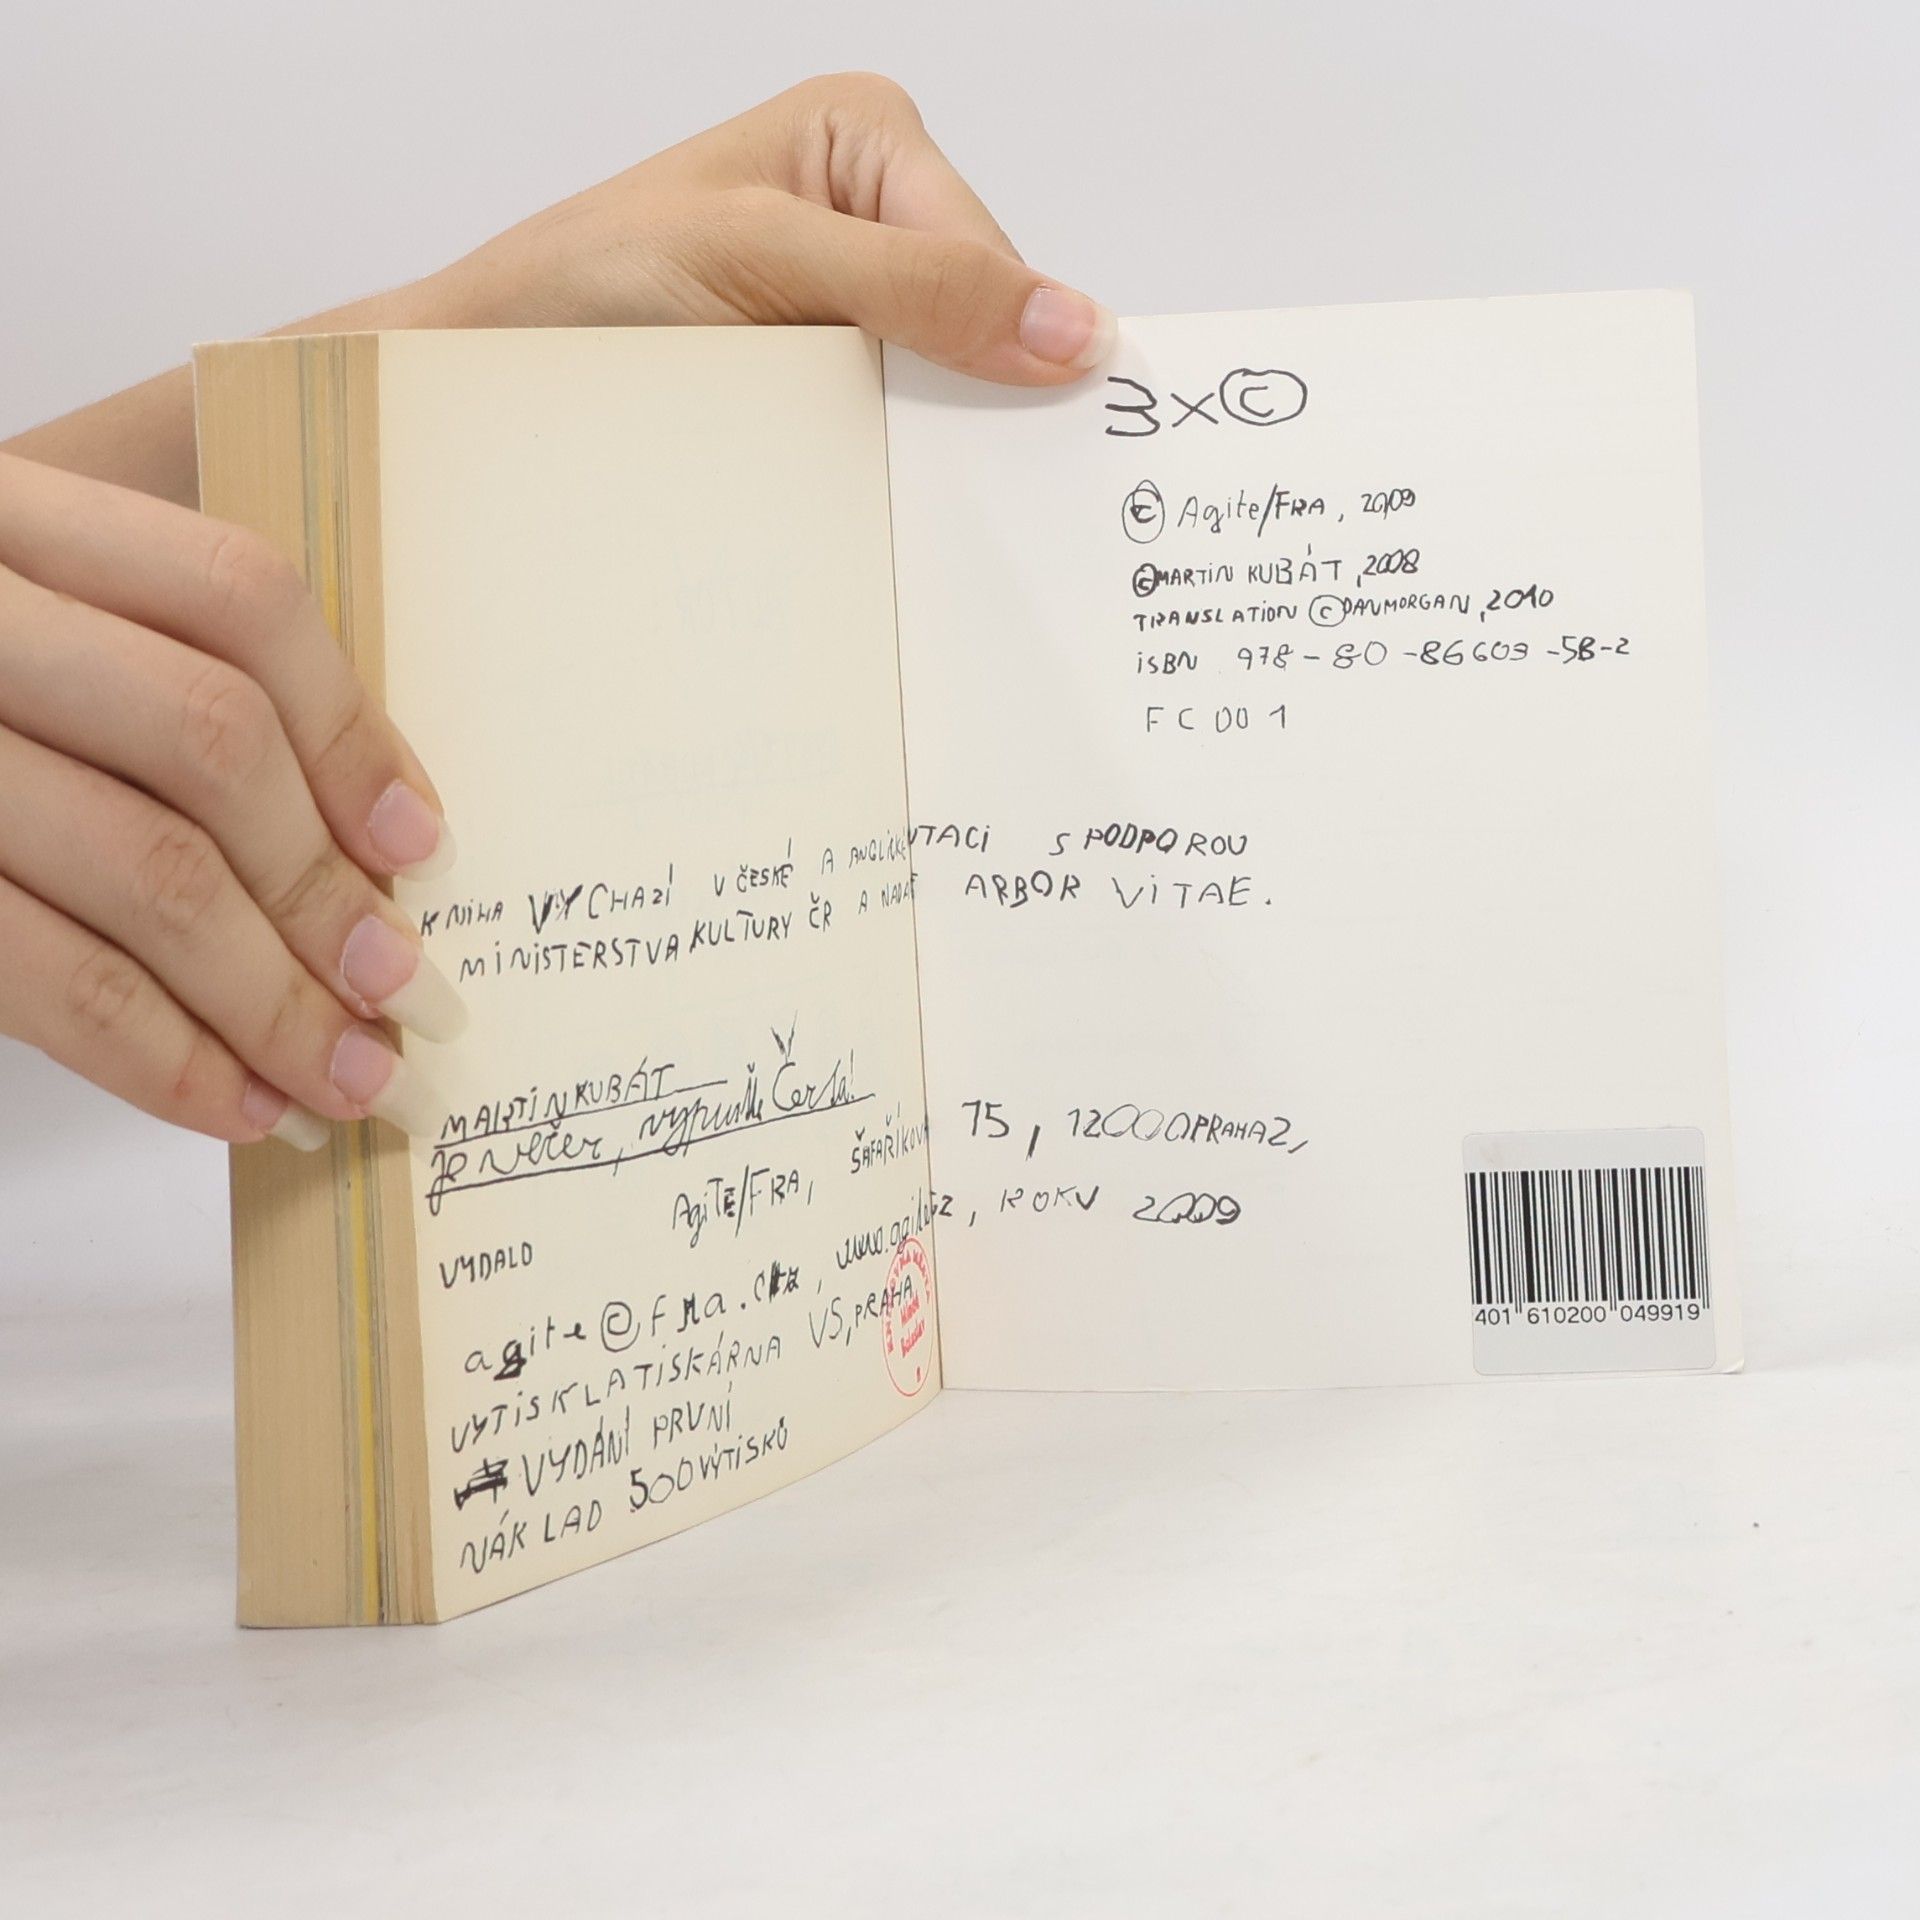 3x©
© Agite/FRA, 2009
© MARTiN KUBÁT, 2008
TRANSLATiON © DAN MORGAN, 2010
iSBN 978-80-86603-58-2
FC 001
KNiHA VYCHAZÍ V ČESKÉ A ANGLiCKÉ UTACi S PODPOROU
MiNiSTERSTVA KULTURY ČR A NADA ARBOR ViTAE.
MARTiN KUBÁT
Je večer, vypusťte Čerta!
VYDALO Agite/FRA, ŠAFAŘÍKOVA 15, 12000 PRAHA2,
agite@fra.cz, www.agite.cz, ROKU 2009
VYTiSKLA TiSKÁRNA VS, PRAHA
VYDÁNÍ PRVNÍ
NÁKLAD 500 VÝTiSKŮ
401 610200 049919